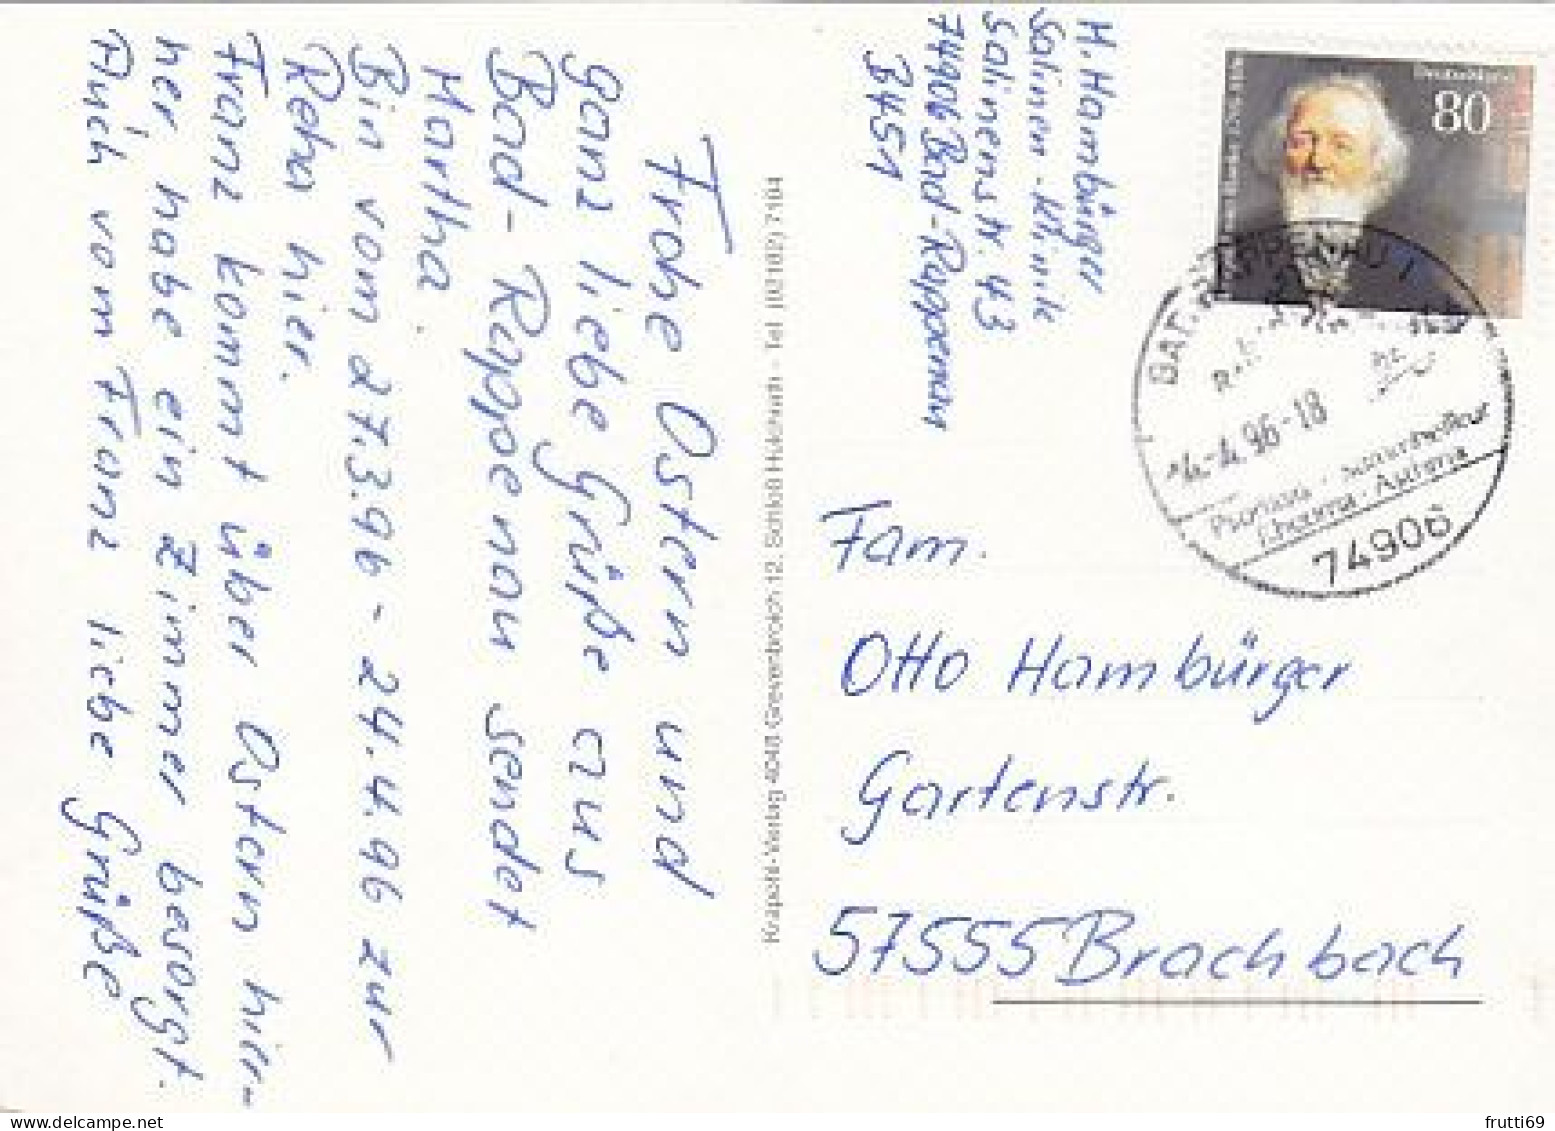 Frohe Ostern und
ganz liebe Grüße aus
Bad-Rappenau sendet
Martha
Bin vom 27.3.96-24.4.96 zur
Reha hier.
Franz kommt über Ostern hier-
her, habe ein Zimmer besorgt.
Auch vom Franz liebe Grüße
Krapohl-Verlag 4048 Grevenbroich 12, Schloß Hülchrath - Tel. (02182) 7184
M. Hambürger
Saline-Klinik
Salinenstr. 43
74906 Bad-Rappenau
B451
Deutschland
80
-4.96-18
74906
Fam.
Otto Hambürger
Gartenstr.
57555 Brachbach
frutti69